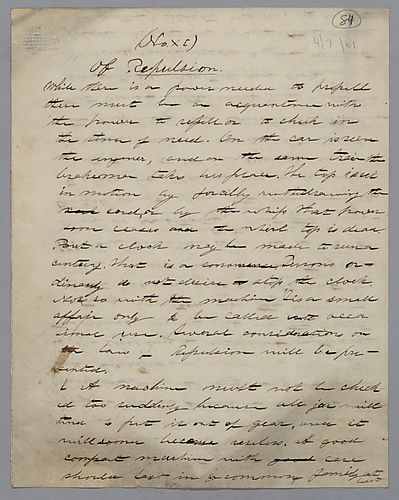 84
6/7/61
(No x c)
Of Repulsion.
While there is a power needed to propell
there must be an acquantance with
the power to repell or to check in
the time of need. On the car is seen
the enginer, and on the same train the
brakeman takes his place. The top is set
in motion by forcibly withdrawing the
cord, or by the whip that power
soon ceases and the whirl top is dead.
But a clock may be made to run a
century. that is a common, Persons or-
dinarily do not desire to stop the clock
Not so with the machine 'Tis a small
affair only to be called into occa
sional use. Several consideration on
the law Repulsion will be pre-
sented.
1 A machine must not be check
ed too suddenly because all jar will
tend to put it out of gear, and it
will soon become useless. A good
compact machine with good care
should last in a common family at